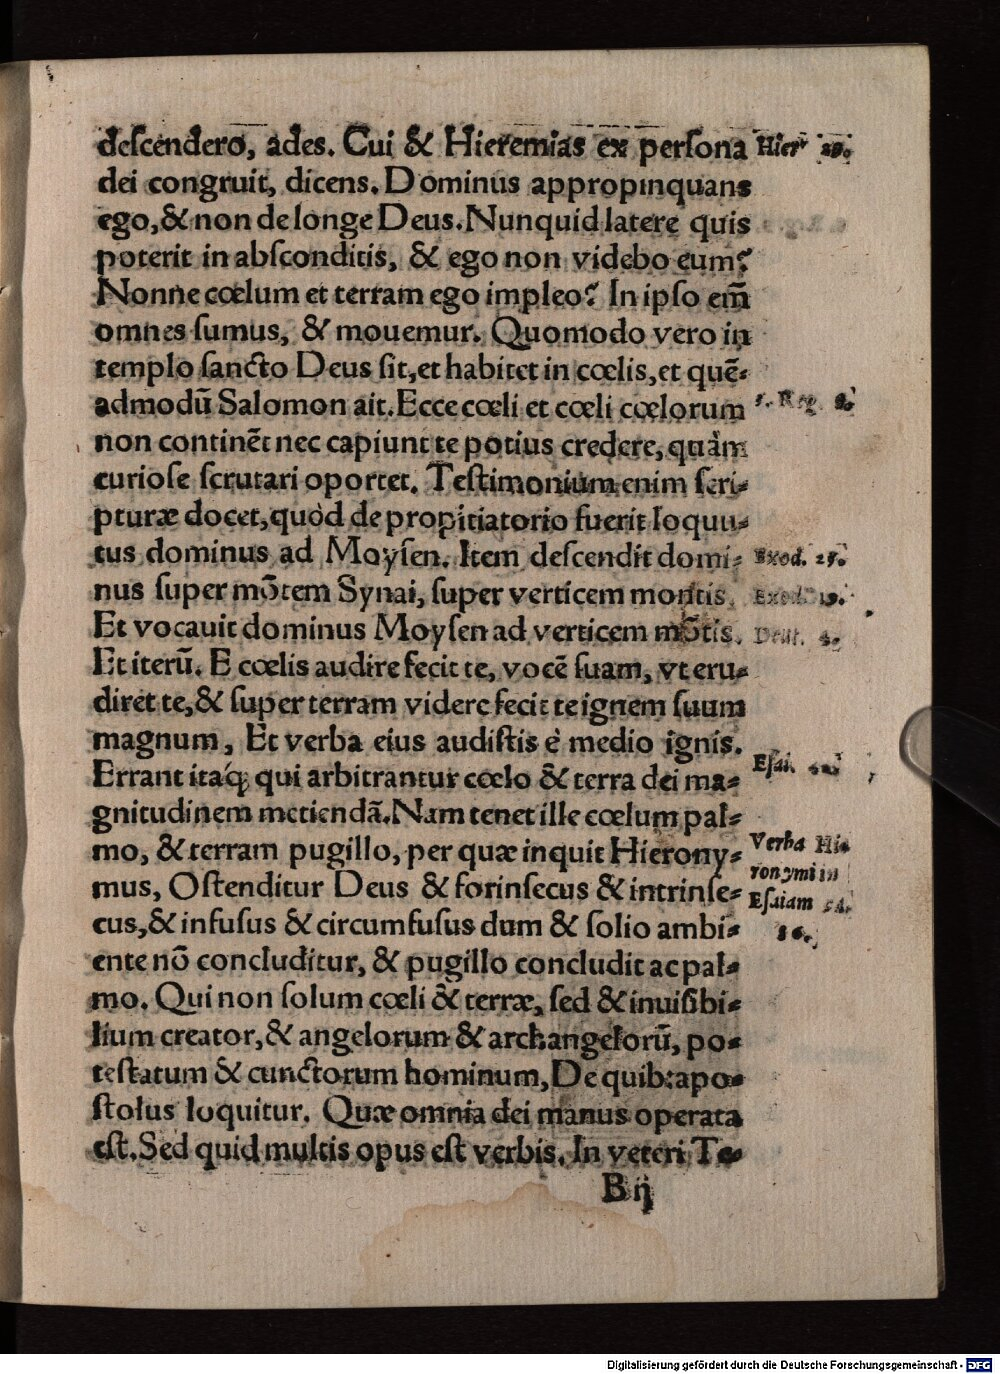 deſcendero, ades. Cui & Hieremias ex perſona
dei congruit, dicens. Dominus appropinquans
ego, & non de longe Deus. Nunquid latere quis
poterit in abſconditis, & ego non videbo eum?
Nonne cœlum et terram ego impleo? In ipſo em̃
omnes ſumus, & mouemur. Quomodo vero in
templo ſancto Deus ſit, et habitet in cœlis, et quē-
admodū Salomon ait. Ecce cœli et cœli cœlorum
non continēt nec capiunt te potius credere, quàm
curioſe ſcrutari oportet. Teſtimonium enim ſcri-
pturæ docet, quòd de propitiatorio fuerit loquu-
tus dominus ad Moyſen. Item deſcendit domi-
nus ſuper mōtem Synai, ſuper verticem montis.
Et vocauit dominus Moyſen ad verticem mōtis.
Et iterū. E cœlis audire fecit te, vocē ſuam, vt eru-
diret te, & ſuper terram videre fecit te ignem ſuum
magnum, Et verba eius audiſtis è medio ignis.
Errant itaq; qui arbitrantur cœlo & terra dei ma-
gnitudinem metiendā. Nam tenet ille cœlum pal-
mo, & terram pugillo, per quæ inquit Hierony-
mus, Oſtenditur Deus & forinſecus & intrinſe-
cus, & infuſus & circumfuſus dum & ſolio ambi-
ente nō concluditur, & pugillo concludit ac pal-
mo. Qui non ſolum cœli & terræ, ſed & inuiſibi-
lium creator, & angelorum & archangelorū, po-
teſtatum & cunctorum hominum, De quib: apo-
ſtolus loquitur. Quæ omnia dei manus operata
eſt. Sed quid multis opus eſt verbis. In veteri Te-
B ij
Hier 23.
Reg. 8.
Exod. 25.
Exod. 19.
Deut. 4.
Eſai.
Verba Hie
ronymi in
Eſaiam
Digitalisierung gefördert durch die Deutsche Forschungsgemeinschaft - DFG